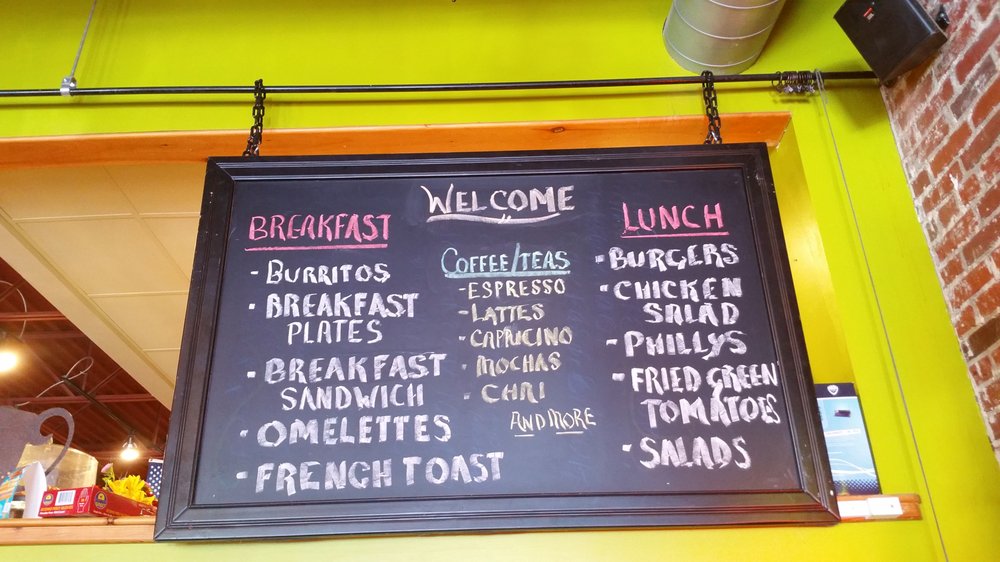 WELCOME
BREAKFAST
- BURRITOS
- BREAKFAST
PLATES
- BREAKFAST
SANDWICH
- OMELETTES
- FRENCH TOAST
COFFEE/TEAS
- ESPRESSO
- LATTES
- CAPRICINO
- MOCHAS
- CHRI
AND MORE
LUNCH
- BURGERS
- CHICKEN
SALAD
- PHILLYS
- FRIED GREEN
TOMATOES
- SALADS